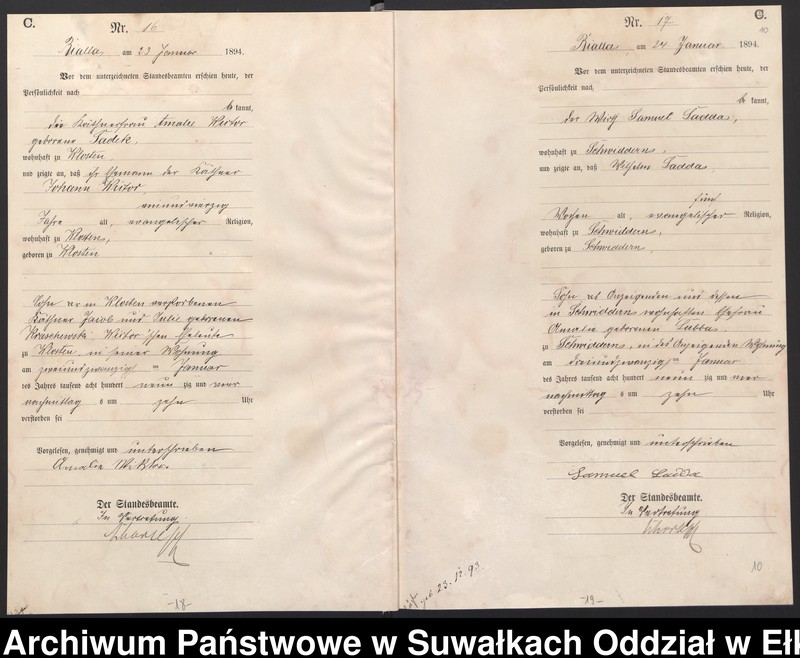 C.
Nr. 16
Bialla am 23 Januar 1894.
Vor dem unterzeichneten Standesbeamten erschien heute, der
Persönlichkeit nach
be kannt,
die Käthnerfrau Amalie Wiktor
geborene Sadek,
wohnhaft zu Klosten
und zeigte an, daß ihr Ehemann der Käthner
Johann Wiktor,
neunundvierzig
Jahre alt, evangelischer Religion,
wohnhaft zu Klosten,
geboren zu Klosten
Sohn der in Klosten verstorbenen
Käthner Jacob und Julie geborenen
Kraschewski Wiktor'schen Eheleute
zu Klosten, in seiner Wohnung
am zweiundzwanzigten Januar
des Jahres tausend acht hundert neun zig und vier
nachmittag s um zehn Uhr
verstorben sei
Vorgelesen, genehmigt und unterschrieben
Amalie Wiktor.
Der Standesbeamte.
In Vertretung
-18-
C.
10
Nr. 17
Bialla am 24 Januar 1894.
Vor dem unterzeichneten Standesbeamten erschien heute, der
Persönlichkeit nach
be kannt,
der Wirth Samuel Sadda,
wohnhaft zu Schwiddern,
und zeigte an, daß Wilhelm Sadda,
fünf
Wochen alt, evangelischer Religion,
wohnhaft zu Schwiddern,
geboren zu Schwiddern,
Sohn des Anzeigenden und dessen
in Schwiddern wohnhaften Ehefrau
Amalie geborenen Dubbas,
zu Schwiddern, in des Anzeigenden Wohnung
am dreiundzwanzigten Januar
des Jahres tausend acht hundert neun zig und vier
nachmittag s um zehn Uhr
verstorben sei
Vorgelesen, genehmigt und unterschrieben
Samuel Sadda
Der Standesbeamte.
In Vertretung
geb 23.12.93
10
-19-
Archiwum Państwowe w Suwałkach Oddział w Ełk